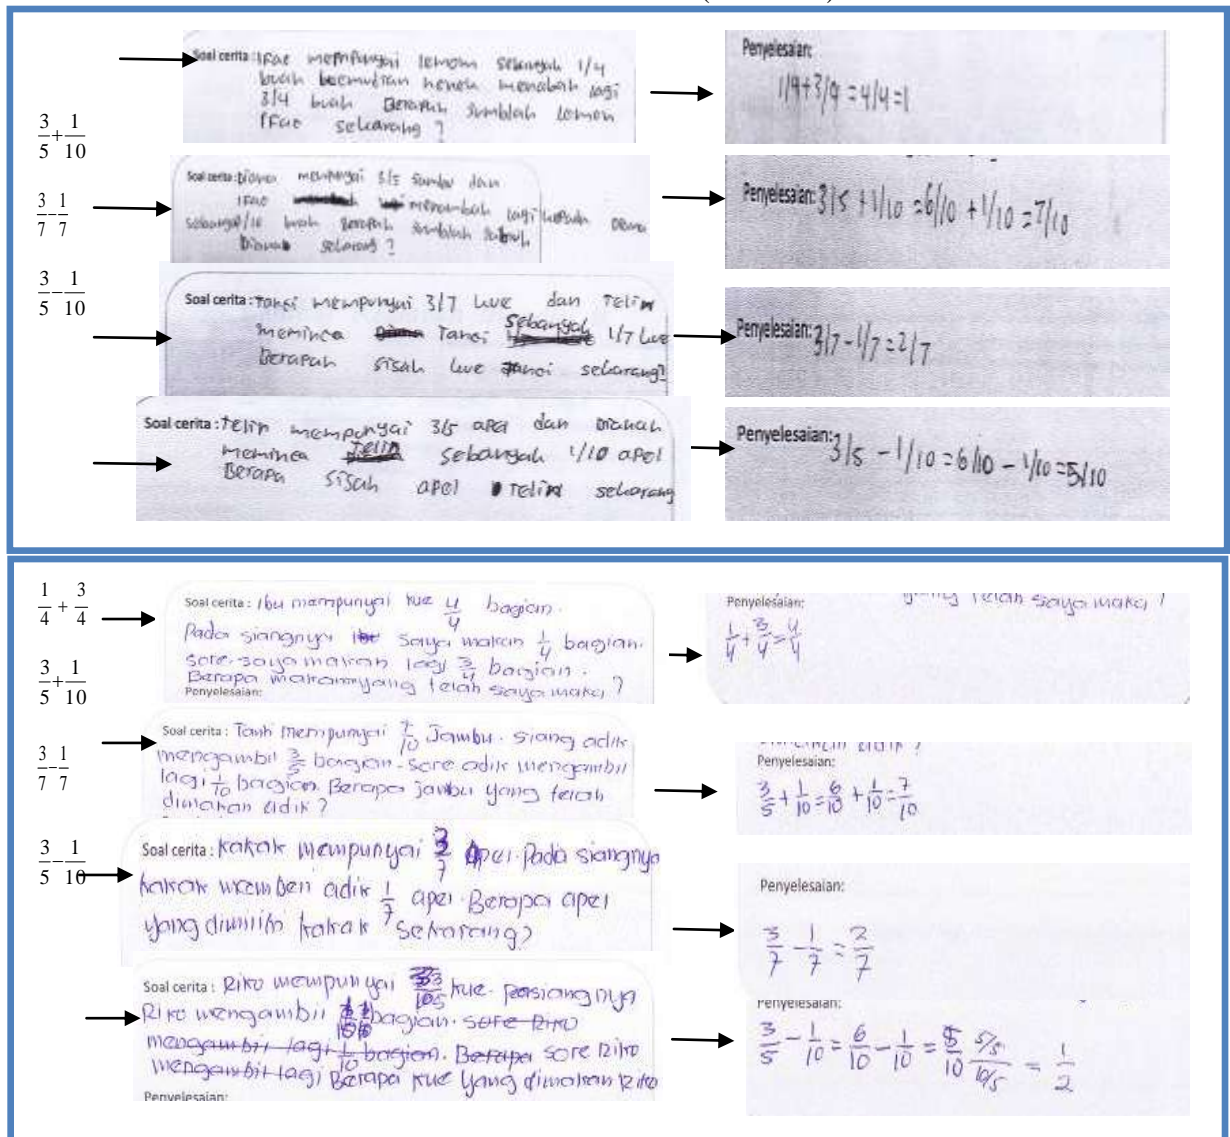 Soal cerita : Ifae mempunyai lemom sebanyak 1/4
buah kemudian henoh menabah lagi
3/4 buah Berapah Jumblah lemon
IFae sekarang ?
Penyelesaian:
1/4+3/4 = 4/4=1
3/5+1/10
Soal cerita : Diana mempunyai 3/5 dan
Ifae menambah lagi kepada
1/10 buah Berapah Jumblah
Dianah sekarang ?
Penyelesaian: 3/5 + 1/10 = 6/10 + 1/10 = 7/10
3/7-1/7
3/5-1/10
Soal cerita : Tansi mempunyai 3/7 kue dan Telin
meminta Tansi sebanyak 1/7 kue
Berapah sisah kue Tansi sekarang?
Penyelesaian: 3/7 - 1/7 = 2/7
Soal cerita : Telin mempunyai 3/5 apel dan Dianah
meminta Telin sebanyak 1/10 apel
Berapa sisah apel Telin sekarang
Penyelesaian: 3/5 - 1/10 = 6/10 - 1/10 = 5/10
1/4 + 3/4
Soal cerita : Ibu mempunyai kue 4/4 bagian.
Pada siangnya saya makan 1/4 bagian.
sore saya makan lagi 3/4 bagian.
Berapa makanan yang telah saya maka ?
Penyelesaian:
yang telah saya maka ?
Penyelesaian:
1/4 + 3/4 = 4/4
3/5+1/10
Soal cerita : Tanti mempunyai 7/10 Jambu. siang adik
mengambil 3/5 bagian. sore adik mengambil
lagi 1/10 bagian. Berapa jambu yang telah
dimakan adik ?
Penyelesaian:
3/5 + 1/10 = 6/10 + 1/10 = 7/10
3/7-1/7
3/5-1/10
Soal cerita : Kakak mempunyai 3/7 apel. Pada siangnya
kakak memberi adik 1/7 apel. Berapa apel
yang dimiliki kakak sekarang?
Penyelesaian:
3/7 - 1/7 = 2/7
Soal cerita : Riko mempunyai kue. Pasiangnya
Riko mengambil bagian. sore Riko
mengambil lagi 1/10 bagian. Berapa sore Riko
mengambil lagi Berapa kue yang dimakan Riko
Penyelesaian:
Penyelesaian:
3/5 - 1/10 = 6/10 - 1/10 = 5/10 5/5 10/5 = 1/2